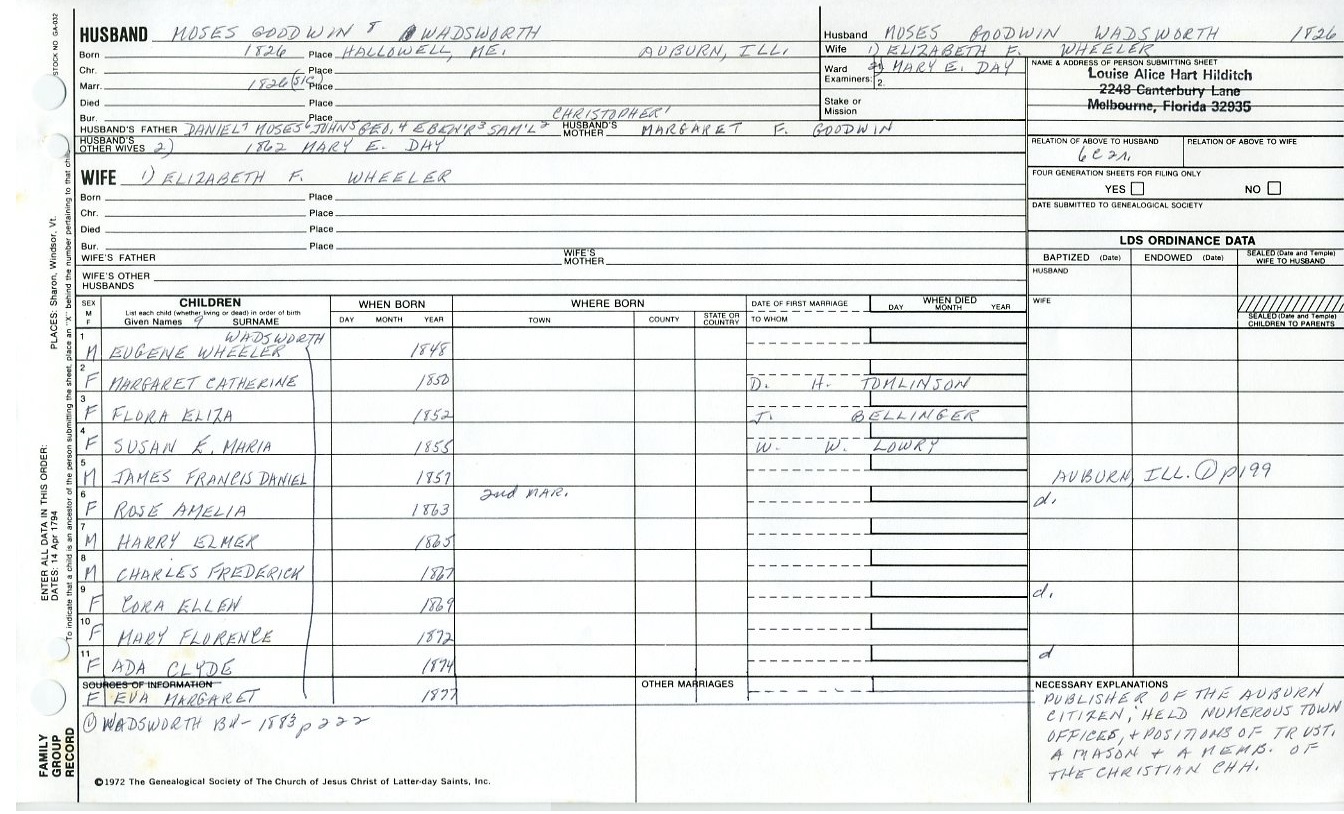 STOCK NO GA-032
HUSBAND MOSES GOODWIN 8 WADSWORTH
Born 1826 Place HALLOWELL, ME. AUBURN, ILL.
Chr. Place
Marr. 1826 (SIC) Place
Died Place
Bur. Place
CHRISTOPHER 1
HUSBAND'S FATHER DANIEL 7 MOSES 6 JOHN 5 GEO. 4 EBEN'R 3 SAM'L 2 HUSBAND'S MOTHER MARGARET F. GOODWIN
HUSBAND'S OTHER WIVES 2) 1862 MARY E. DAY
Husband MOSES GOODWIN WADSWORTH 1826
Wife 1) ELIZABETH F. WHEELER
Ward 2) MARY E. DAY
Examiners: 2.
Stake or Mission
NAME & ADDRESS OF PERSON SUBMITTING SHEET
Louise Alice Hart Hilditch
2248 Canterbury Lane
Melbourne, Florida 32935
RELATION OF ABOVE TO HUSBAND RELATION OF ABOVE TO WIFE
FOUR GENERATION SHEETS FOR FILING ONLY
YES NO
DATE SUBMITTED TO GENEALOGICAL SOCIETY
WIFE 1) ELIZABETH F. WHEELER
Born Place
Chr. Place
Died Place
Bur. Place
WIFE'S FATHER WIFE'S MOTHER
WIFE'S OTHER HUSBANDS
LDS ORDINANCE DATA
BAPTIZED (Date) ENDOWED (Date) SEALED (Date and Temple) WIFE TO HUSBAND
HUSBAND
WIFE
SEALED (Date and Temple) CHILDREN TO PARENTS
SEX M F
CHILDREN
List each child (whether living or dead) in order of birth
Given Names 9 SURNAME
WHEN BORN
DAY MONTH YEAR
WHERE BORN
TOWN COUNTY STATE OR COUNTRY
DATE OF FIRST MARRIAGE
TO WHOM
WHEN DIED
DAY MONTH YEAR
WADSWORTH
1 M EUGENE WHEELER 1848
2 F MARGARET CATHERINE 1850 D. H. TOMLINSON
3 F FLORA ELIZA 1852 J. BELLINGER
4 F SUSAN E. MARIA 1855 W. W. LOWRY
5 M JAMES FRANCIS DANIEL 1857 AUBURN, ILL. ① p199
2nd MAR.
6 F ROSE AMELIA 1863 d.
7 M HARRY ELMER 1865
8 M CHARLES FREDERICK 1867
9 F CORA ELLEN 1869 d.
10 F MARY FLORENCE 1872
11 F ADA CLYDE 1874 d
SOURCES OF INFORMATION OTHER MARRIAGES
F EVA MARGARET 1877
① WADSWORTH BK- 1883 p 222
NECESSARY EXPLANATIONS
PUBLISHER OF THE AUBURN
CITIZEN; HELD NUMEROUS TOWN
OFFICES, + POSITIONS OF TRUST.
A MASON + A MEMB. OF
THE CHRISTIAN CHH.
©1972 The Genealogical Society of The Church of Jesus Christ of Latter-day Saints, Inc.
FAMILY GROUP RECORD
ENTER ALL DATA IN THIS ORDER:
DATES: 14 Apr 1794
PLACES: Sharon, Windsor, Vt.
To indicate that a child is an ancestor of the person submitting the sheet, place an "X" behind the number pertaining to that chi